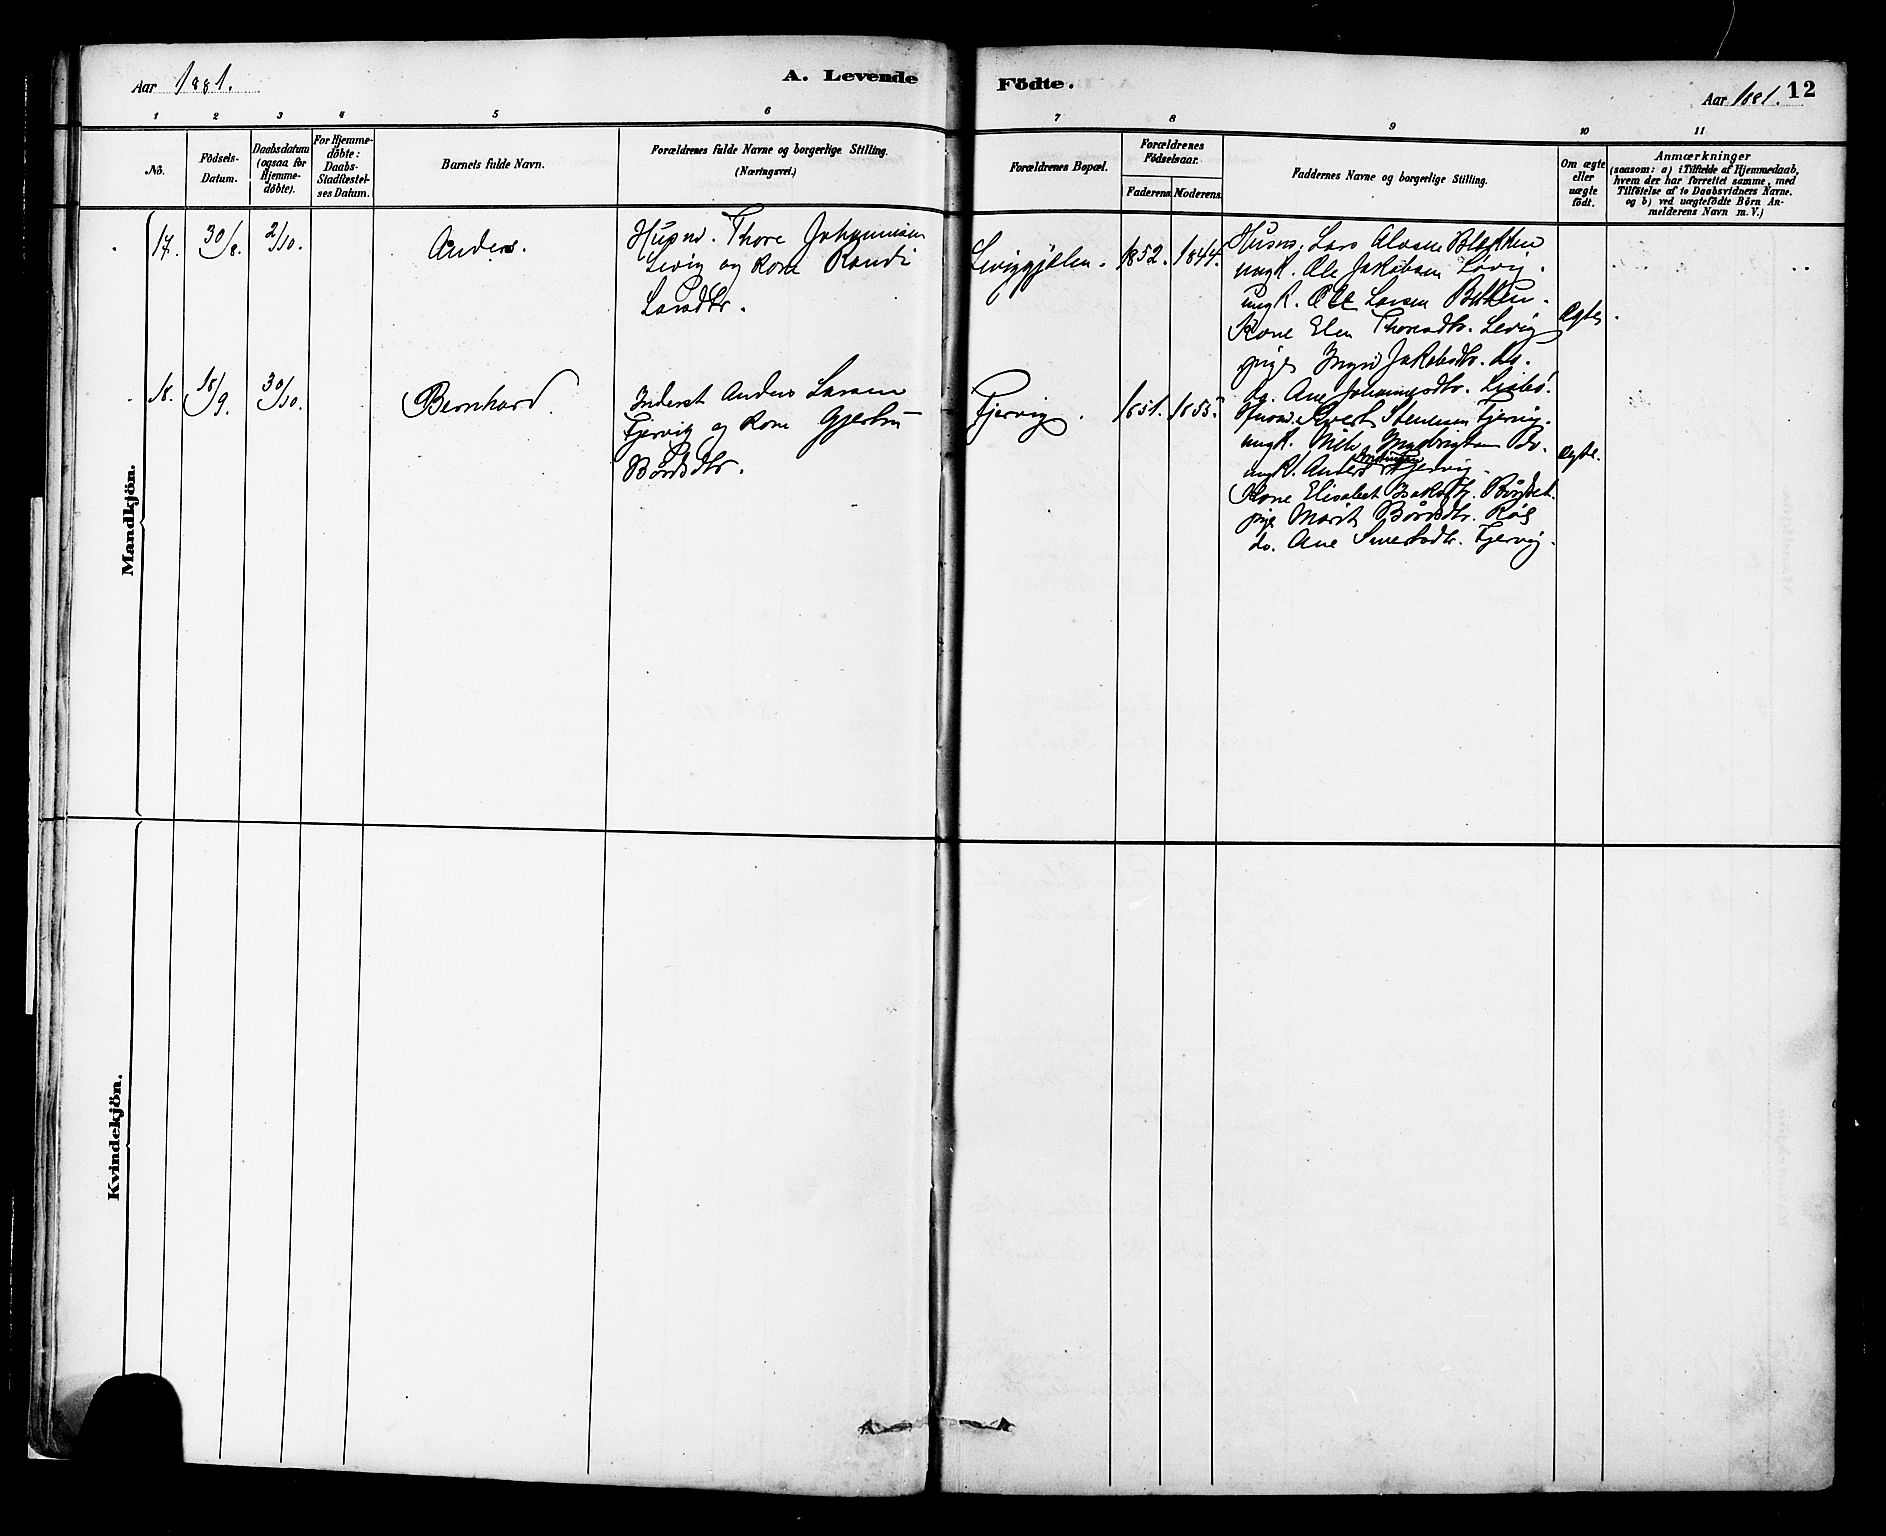 Aar 1881.
A. Levende
Födte.
Aar 1881.
12
1 2 3 4 5 6 7 8 9 10 11
No.
Födsels-
Datum.
Daabsdatum
(ogsaa for
Hjemme-
döbte).
For Hjemme-
döbte:
Daabs-
Stadfæstel-
ses Datum.
Barnets fulde Navn.
Forældrenes fulde Navne og borgerlige Stilling.
(Næringsvei.)
Forældrenes Bopæl.
Forældrenes
Födselsaar.
Faderens. Moderens.
Faddernes Navne og borgerlige Stilling.
Om ægte
eller
uægte
födt.
Anmærkninger
(saasom: a) i Tilfælde af Hjemmedaab,
hvem der har forrettet samme, med
Tilföielse af to Daabsvidners Navne.
og b) ved uægtefödte Börn An-
melderens Navn m. V.)
Mandkjön.
17. 30/8. 2/10. Anders.
Husm. Thore Johannesen
Levig og Kone Randi
Larsdtr.
Leviggjælen. 1852. 1844.
Husm. Lars Olsen
ungk. Ole Jakobsen
ungk. Ole Larsen
Kone Elen Thoresdtr. Levig
pige Jakobsdtr. do.
do. Ane Johannesdtr.
Ægte.
18. 18/9. 30/10. Bernhard.
Inderst Anders Larsen
Fjervig og Kone Gjertru
Bårdsdtr.
Fjervig. 1851. 1855.
Husm. Sivert Fjervig.
ungk. Nils Ingebrigtsen do.
ungk. Anders Fjervig.
Kone Elisabet
pige Marit Bårdsdtr.
do. Ane Sivertsdtr. Fjervig.
Ægte.
Kvindekjön.